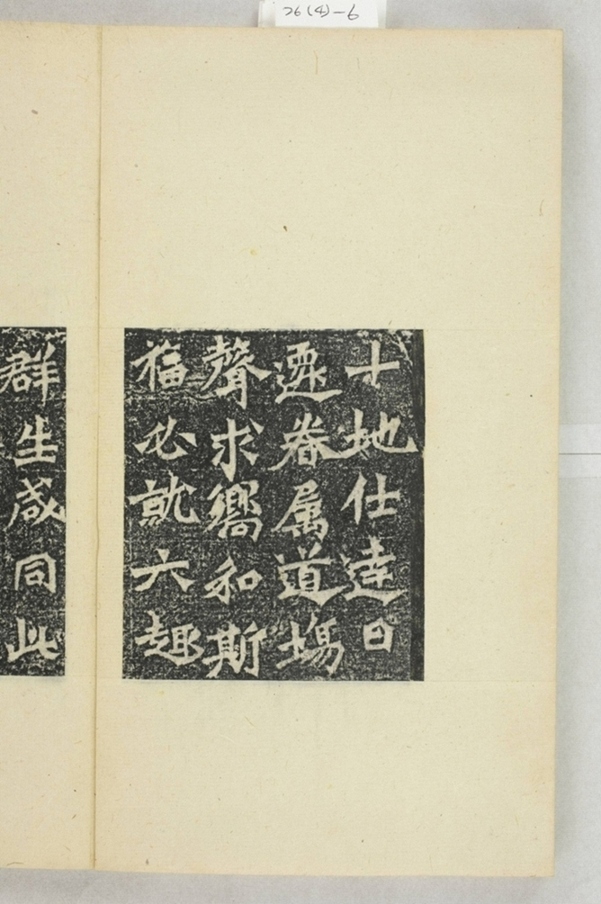 26(4)-6
十地仕達日
遝眷属道塲
聲求嚮和斯
福必就六趣
群生咸同此